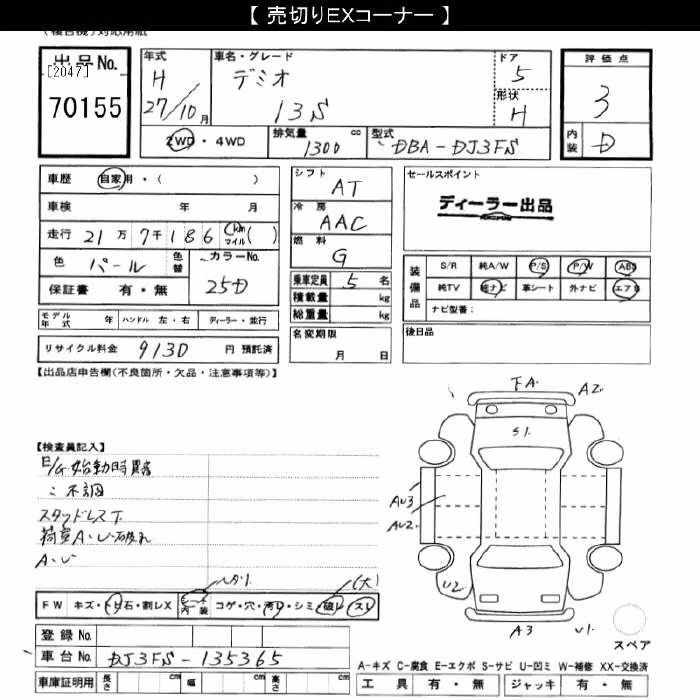 【 売切りEXコーナー 】
(複合機)対応用紙
出品No.
[2047]
70155
年式 H 27/10 月
車名・グレード デミオ 13S
ドア 5
形状 H
評価点 3
内装 D
2WD ・ 4WD
排気量 1300 cc
型式 DBA-DJ3FS
車歴 自家用・( )
車検 年 月
走行 21万7千186 (km マイル)( )
色 パール 色替
カラーNo. 25D
保証書 有・無
モデル年式 年 ハンドル 左・右 ディーラー・並行
リサイクル料金 9130 円 預託済
シフト AT
冷房 AAC
燃料 G
乗車定員 5 名
積載量 kg
総重量 kg
名変期限 月 日
セールスポイント
ディーラー出品
装備品
S/R 純A/W P/S P/W ABS
純TV 純ナビ 革シート 外ナビ エアB
ナビ型番:
後日品
【出品店申告欄(不良箇所・欠品・注意事項等)】
【検査員記入】
E/G始動時異音
〃 不調
スタッドレス下
荷室A・U・破れ
A・U
FA
A2
S1
AU3
AU2
U2
A3
U1
スペア
(大)
FW キズ・トビ石・割レX
シート 内装 コゲ・穴・汚レ・シミ・破レ・スレ
登録No.
車台No. DJ3FS-135365
車庫証明用 長さ cm 幅 cm 高さ cm
A-キズ C-腐食 E-エクボ S-サビ U-凹ミ W-補修 XX-交換済
工具 有・無 ジャッキ 有・無